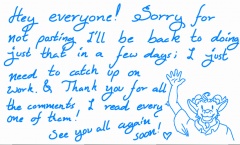 Hey everyone! Sorry for
not posting I'll be back to doing
just that in a few days; I just
need to catch up on
work. & Thank you for all
the comments, I read every
one of them!
See you all again
soon! ♡